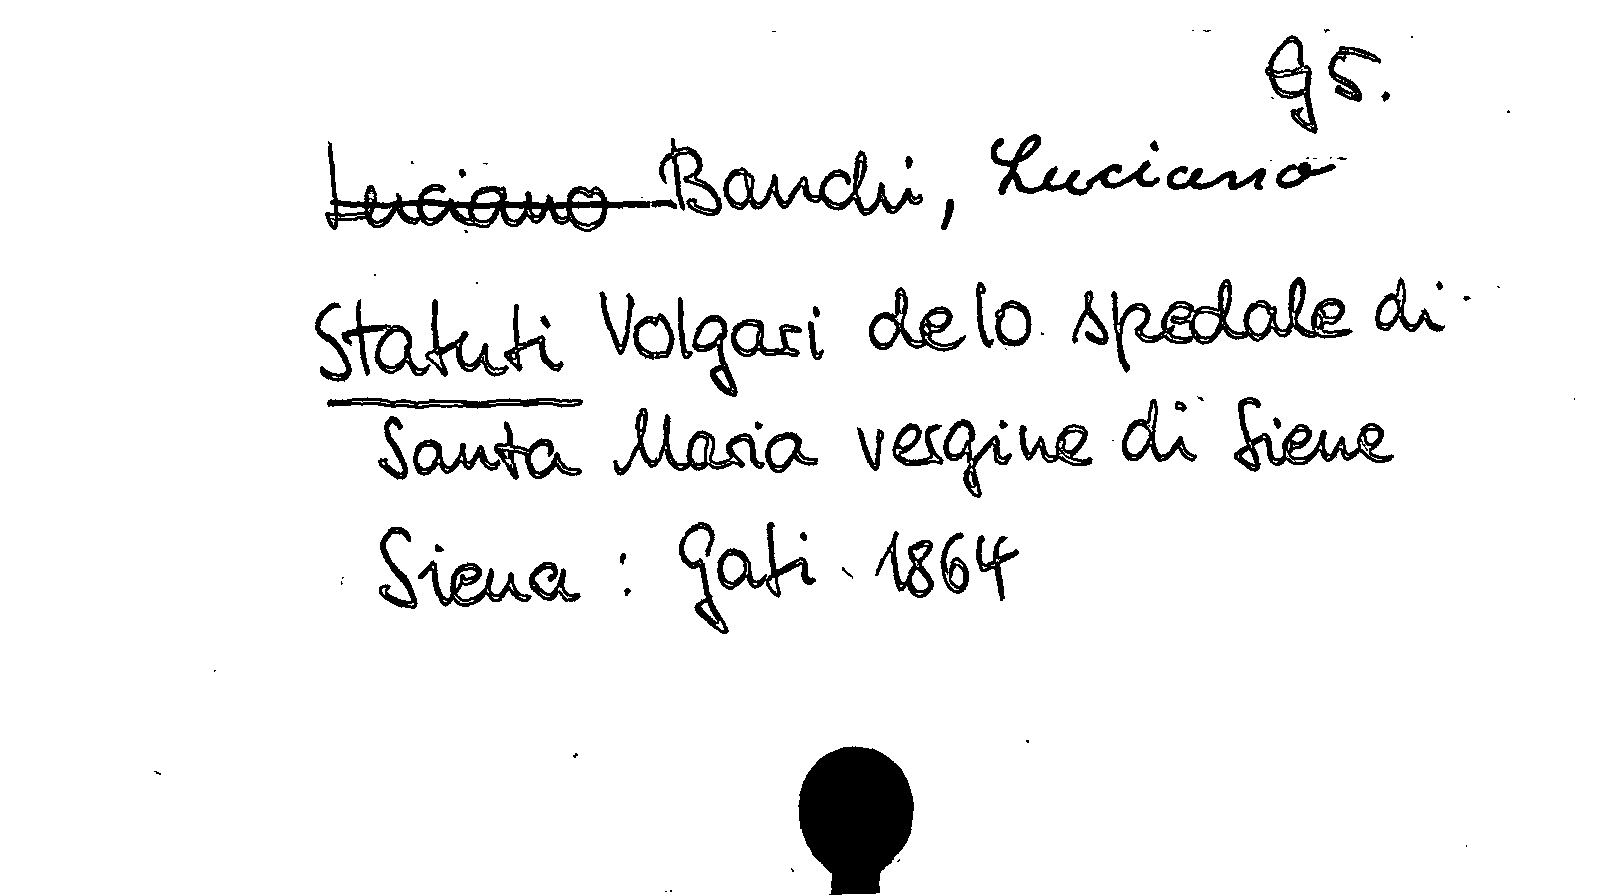 G5.
Luciano Banchi, Luciano
Statuti Volgari delo spedale di
Santa Maria vergine di Siene
Siena : Gati. 1864